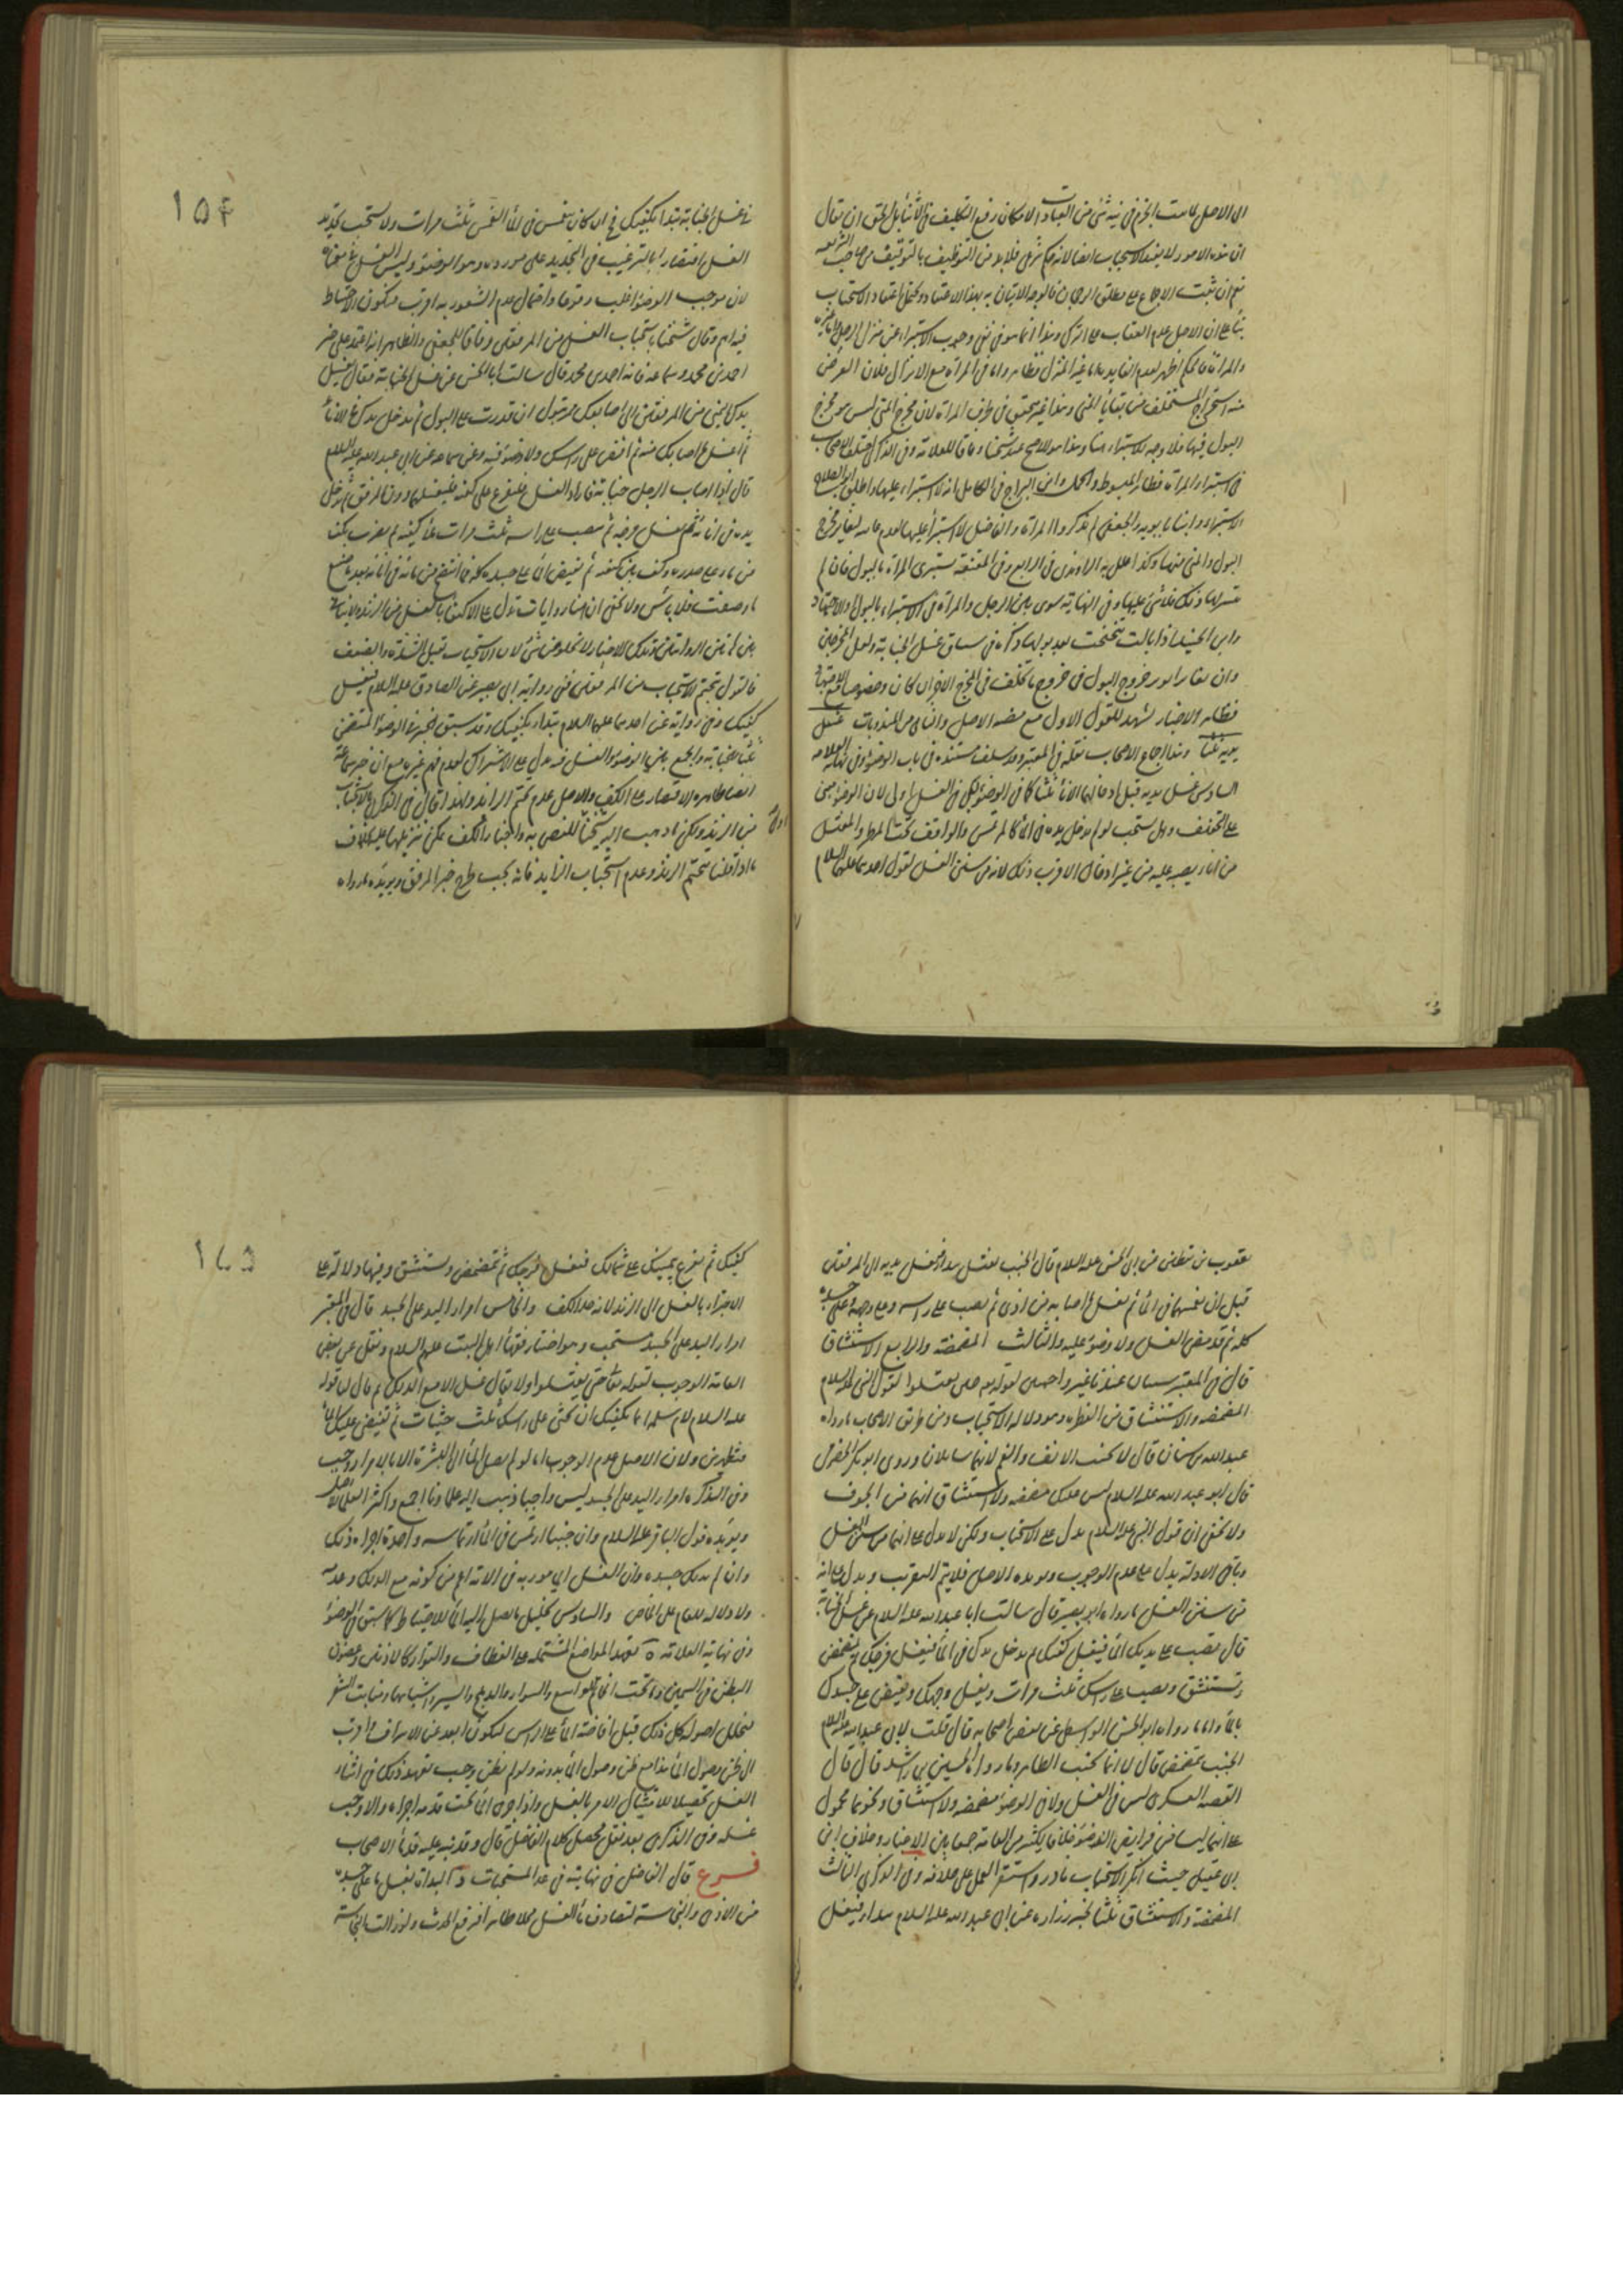 ان هذه الامور لا يفيد الاستحباب ايضا لانه حكم شرعي فلا بد من التوظيف بالتوقيف من صاحب الشريعة
نعم ان ثبت الاجماع على مطلق الرجحان فالوجه الاتيان به بهذا الاعتقاد دون اعتقاد الاستحباب
بناء على ان الاصل عدم العقاب على الترك وهذا انما هو في نفي وجوب الاستبراء عن منزل الرجل
والمرأة فالحكم اظهر لعدم الفايدة اما غير المنزل فظاهر واما في المرأة مع الانزال فلان الغرض
منه استخراج المتخلف من بقايا المني وهذا غير متحقق في طرف المرأة لان مخرج المني ليس هو مخرج
البول فيها فلا وجه للاستبراء هنا وهذا هو الاصح عند شيخنا وفاقا للعلامة وفي الذكرى اختلف الاصحاب
في استبراء المرأة فظاهر المبسوط والجمل وابن البراج في الكامل انه لا استبراء عليها واطلق ابو الصلاح
الاستبراء وابنا بابويه والجعفي لم يذكروا المرأة والفاضل لا استبراء عليها لعدم فايدته لتغاير مخرج
البول والمني منها وكذا علل به الراوندي في الرابع وفي المقنعة تستبرئ المرأة بالبول فان لم
يتيسر لها ذلك فلا شيء عليها وفي النهاية سوى بين الرجل والمرأة في الاستبراء بالبول والاجتهاد
وابن الجنيد اذا بالت تنحنحت بعد بولها وذكره في سياق غسل الجنابة ولعل المخرجين
وان تغايرا يؤثر خروج البول في خروج ما تخلف في المخرج الاخر ان كان وخصوصا مع الاجتهاد
فظاهر الاخبار يشهد للقول الاول مع عضد الاصل والثاني من المندوبات غسل
يديه ثلثا وهذا اجماع الاصحاب نقله في المعتبر وقد سلف مستنده في باب الوضوء وفي نهاية العلامة
السادس غسل يديه قبل ادخالهما الاناء ثلثا كما في الوضوء بل في الغسل اولى لان الوضوء مبني
على التخفيف وهل يستحب لو لم يدخل يده في الاناء كالمرتمس والواقف تحت المطر والمغتسل
من اناء يصب عليه من غير ادخال الاقرب ذلك لانه من سنن الغسل لقول احدهما عليهما السلام
١٥٤
الغسل اقتصارا بالترغيب في التجديد على مورده وهو الوضوء وليس الغسل في معناه
لان موجب الوضوء اغلب وقوعا واحتمال عدم الشعور به اقرب فيكون الاحتياط
فيه اهم وقال شيخنا باستحباب الغسل من المرفقين وفاقا للجعفي والظاهر انه اعتمد على خبر
احمد بن محمد وسماعة فانه احمد بن محمد قال سالت ابا الحسن عن غسل الجنابة فقال تغسل
يدك اليمنى من المرفقين الى اصابعك وتبول ان قدرت على البول ثم تدخل يدك في الاناء
ثم اغسل ما اصابك منه ثم افض على راسك ولا وضوء فيه وعن سماعة عن ابي عبد الله عليه السلام
قال اذا اصاب الرجل جنابة فاراد الغسل فليفرغ على كفيه فليغسلهما دون المرفق ثم يدخل
يده في انائه ثم يغسل فرجه ثم يصب على راسه ثلث مرات ملأ كفيه ثم يضرب بكف
من ماء على صدره وكف بين كتفيه ثم يفيض الماء على جسده كله فما انتضح من مائه في انائه بعد ما صنع
ما وصفت فلا بأس ولا يخفى ان هنا روايات تدل على الاكتفاء بالغسل من الزند
فالقول بتحتم الاستحباب من المرفقين ففي رواية ابي بصير عن الصادق عليه السلام فيغسل
كفيك وفي رواية عن احدهما عليهما السلام تبدأ بكفيك وقد سبق الخبر في الوضوء المتضمن
ثلثا للجنابة والجمع بين الوضوء والغسل فيه يدل على الاشتراك لعدم فهم غيره مع ان خبر سماعة
ايضا ظاهره الاقتصار على الكف والاصل عدم تحتم الزائد
من الزند ولكن ما ذهب اليه شيخنا للنص به واخبار الكف يمكن تنزيلها عليه بخلاف
ما اذا قلنا بتحتم الزند وعدم استحباب الزايد فانه يجب طرح خبر المرفق ويؤيده ما رواه
يعقوب بن يقطين عن ابي الحسن عليه السلام قال الجنب يغتسل يبدأ فيغسل يديه الى المرفقين
قبل ان يغمسهما في الماء ثم يغسل ما اصابه من اذى ثم يصب على راسه وعلى وجهه وعلى جسده
كله ثم قد مضى الغسل ولا وضوء عليه والثالث المضمضة والرابع الاستنشاق
قال في المعتبر سنتان عندنا غير واجبين لقوله تعالى حتى تغتسلوا لقول النبي عليه السلام
المضمضة والاستنشاق من الفطرة وهو دلالة الاستحباب ومن طريق الاصحاب ما رواه
عبد الله بن سنان قال لا يجنب الانف والفم لانهما سايلان وروى ابو بكر الحضرمي
قال ابو عبد الله عليه السلام ليس عليك مضمضة ولا استنشاق انهما من الجوف
ولا يخفى ان قول النبي عليه السلام يدل على الاستحباب ولكن لا يدل على انهما من سنن الغسل
وباقي الادلة يدل على عدم الوجوب ويؤيده الاصل فلا يتم التقريب ويدل على انه
من سنن الغسل ما رواه ابو بصير قال سالت ابا عبد الله عليه السلام عن غسل الجنابة
قال تصب على يديك الماء فتغسل كفيك ثم تدخل يدك في الماء فتغسل فرجك ثم تمضمض
وتستنشق وتصب على راسك ثلث مرات وتغسل وجهك وتفيض على جسدك
بالماء واما ما رواه ابو الحسن الواسطي عن بعض اصحابه قال قلت لابي عبد الله عليه السلام
الجنب يتمضمض قال لا انما يجنب الظاهر وما رواه الحسين بن راشد قال قال
الفقيه العسكري ليس في الغسل ولا في الوضوء مضمضة ولا استنشاق ونحوهما محمول
على انهما ليسا من فرايض الوضوء خلافا لكثير من العامة جمعا بين الاخبار وخلاف ابن
ابي عقيل حيث انكر الاستحباب نادر واستقر العمل على خلافه وفي الذكرى الثالث
المضمضة والاستنشاق ثلثا لخبر زرارة عن ابي عبد الله عليه السلام يبدأ فيغسل
١٥٥
كفيك ثم تفرغ بيمينك على شمالك فتغسل فرجك ثم تمضمض وتستنشق وفيها دلالة على
الاجتزاء بالغسل الى الزند لانه حد الكف والخامس امرار اليد على الجسد قال في المعتبر
امرار اليد على الجسد مستحب وهو اختيار فقهاء اهل البيت عليهم السلام ونقل عن بعض
العامة الوجوب لقوله تعالى حتى تغتسلوا ولا يقال غسل الا مع الدلك ثم قال لنا قوله
عليه السلام لام سلمة انما يكفيك ان تحثي على راسك ثلث حثيات ثم تفيضي عليك الماء
فتطهرين ولان الاصل عدم الوجوب اما لو لم يصل الماء الى البشرة الا بالامرار وجب
وفي التذكرة امرار اليد على الجسد ليس واجبا ذهب اليه علماؤنا اجمع واكثر العلماء للاصل
ويؤيده قول الباقر عليه السلام وان جنبا ارتمس في الماء ارتماسة واحدة اجزاه ذلك
وان لم يدلك جسده وان الغسل المأمور به في الاية اعم من كونه مع الدلك وعدمه
ولا دلالة للعام على الخاص والسادس تخليل ما يصل اليه الماء للاحتياط كما سبق في الوضوء
وفي نهاية العلامة ٥ تعهد المواضع المشتملة على انعطاف والتواء كالاذنين وغضون
البطن في السمين وما تحت الخاتم الواسع والسوار والدملج والسير واشباهها ومنابت الشعر
فيخلل اصوله كل ذلك قبل افاضة الماء على الراس ليكون ابعد عن الاسراف واقرب
الى ظن وصول الماء هذا مع ظن وصول الماء بدونه ولو لم يظن وجب تعهد ذلك في اثناء
الغسل تحصيلا لامتثال الامر بالغسل واذا جرى الماء تحت قدميه اجزاه والا وجب
غسله وفي الذكرى بعد نقل محصل كلام الفاضل قال وقد نبه عليه قدماء الاصحاب
فرع قال الفاضل في نهايته في عد المستحبات و البداة بغسل ما على جسده
من الاذى والنجاسة ليصادف ماء الغسل محلا طاهرا فيرفع الحدث ولو زالت النجاسة